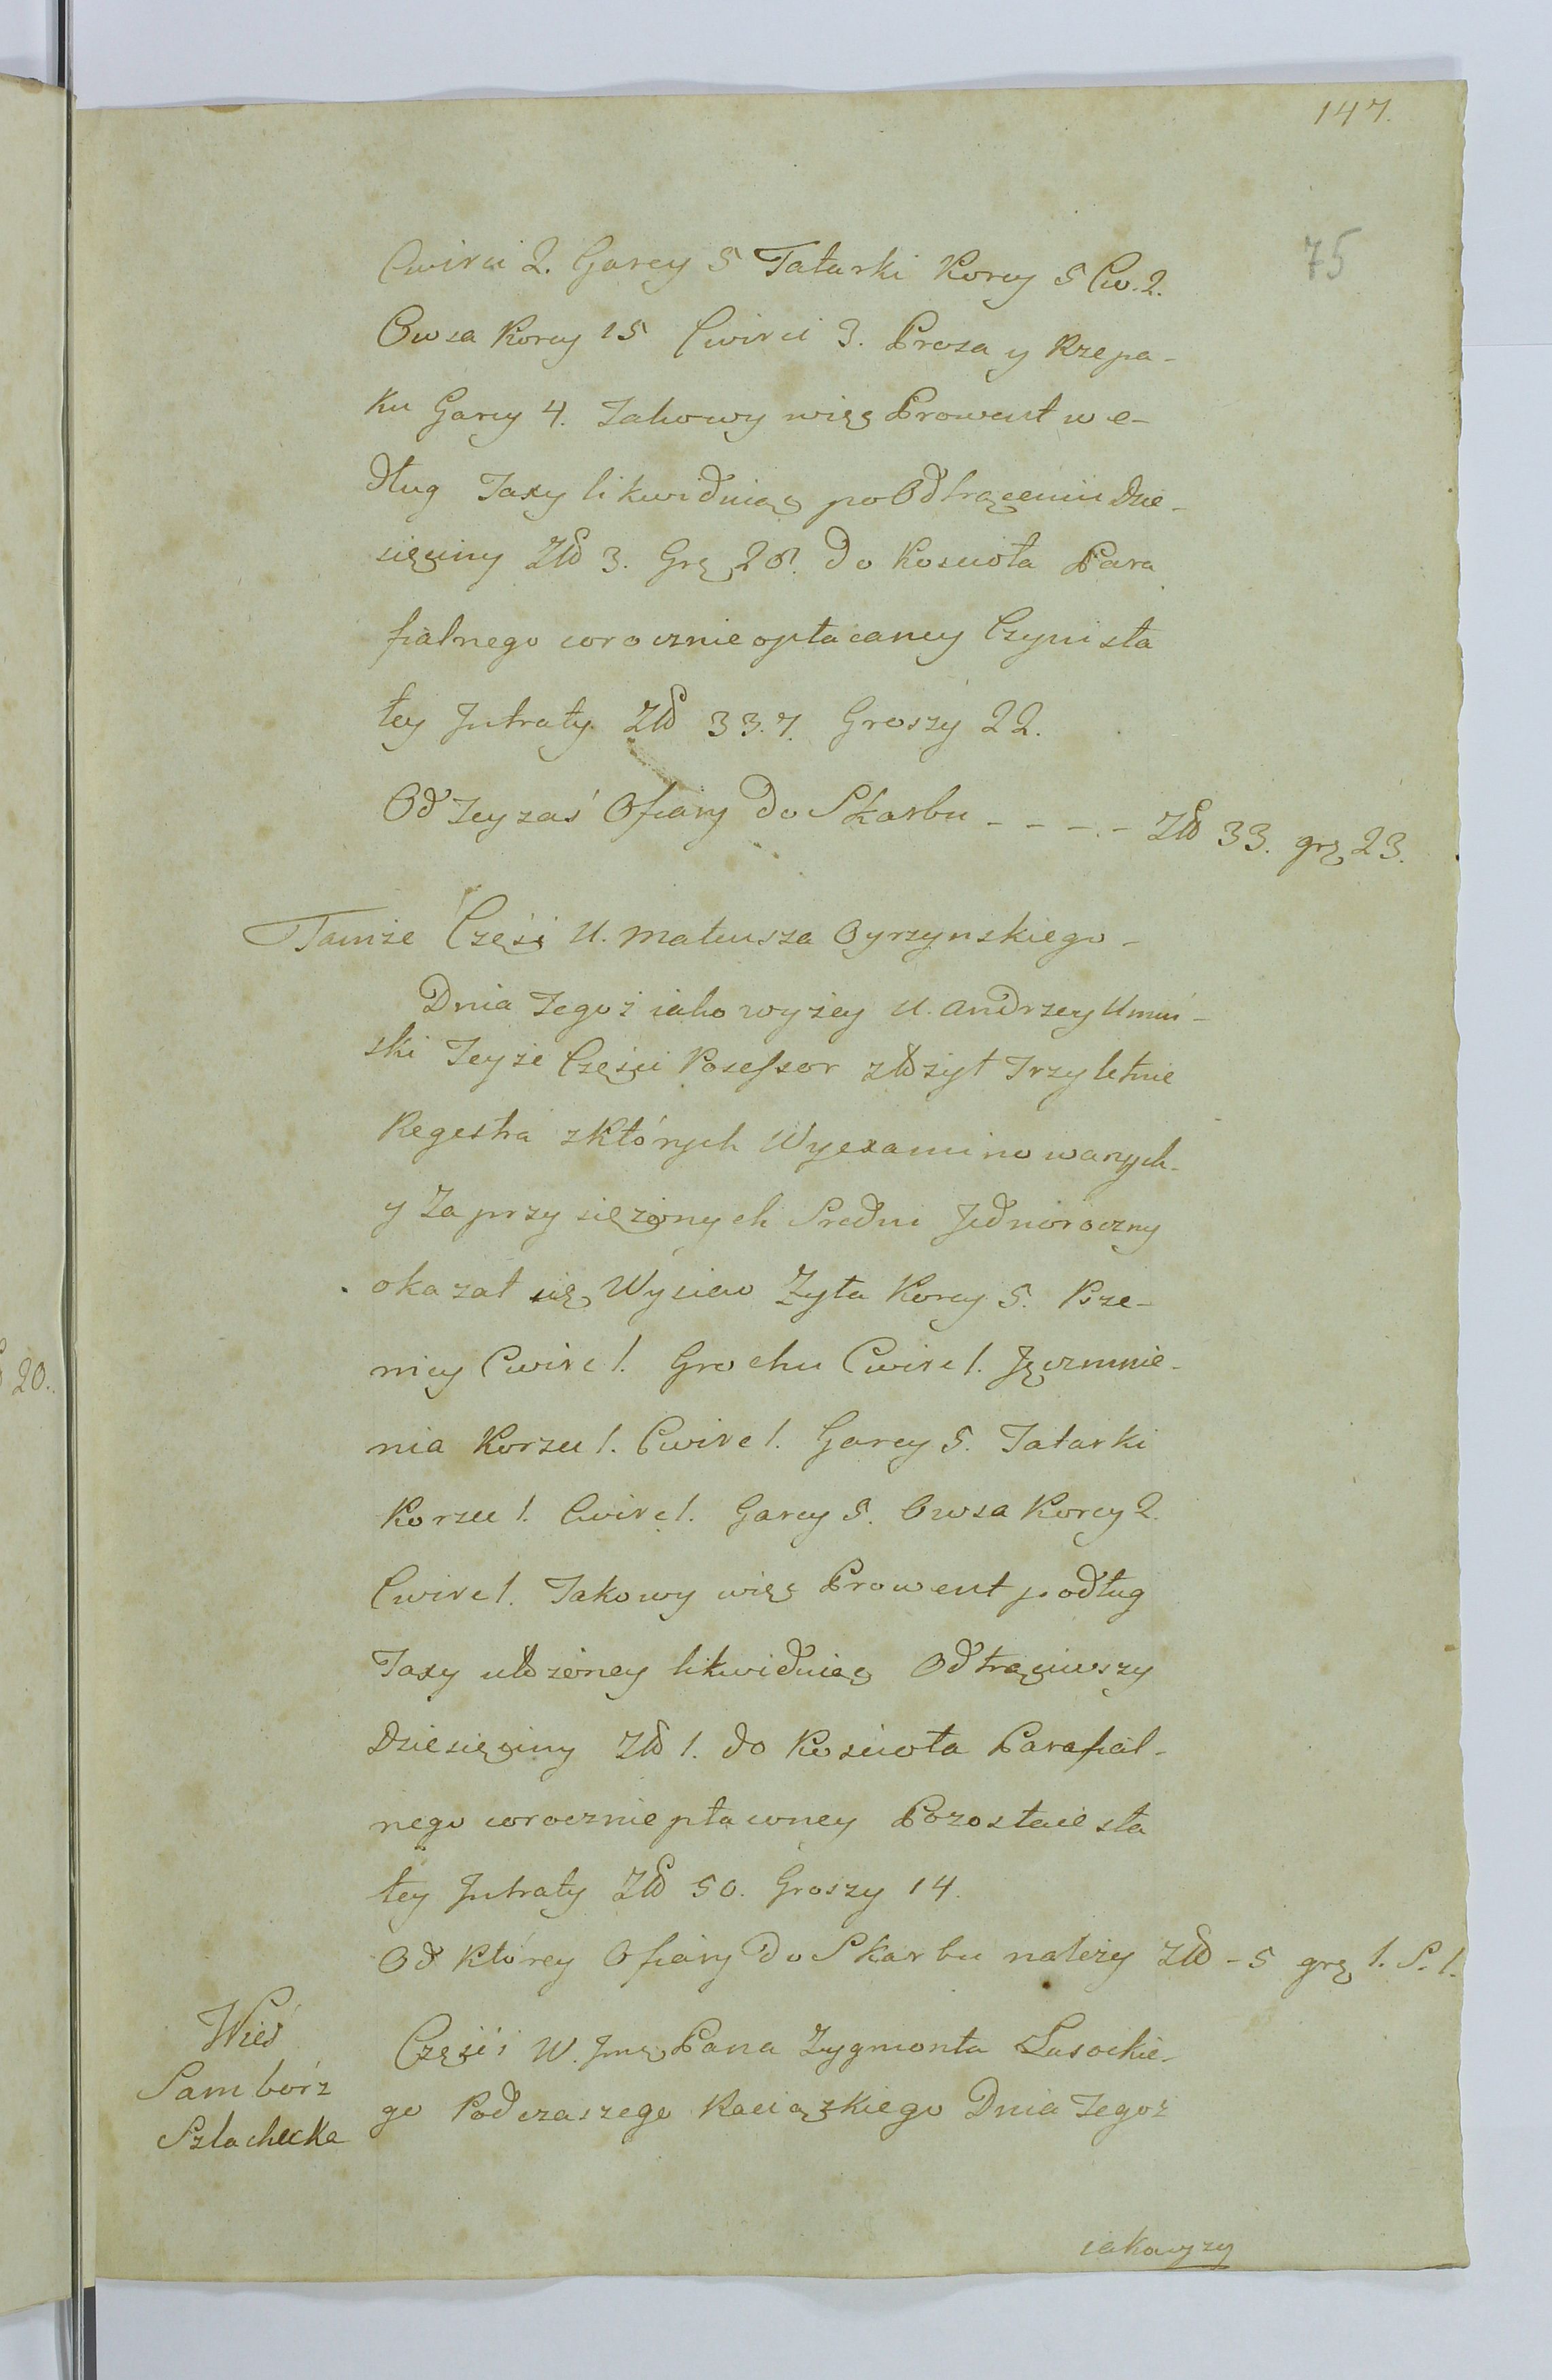 147.
75
Cwirci 2. Garcy 5 Tatarki Korcy 5 Cw. 2.
Owsa Korcy 15 Cwirci 3. Prosa y Rzepa-
ku Garcy 4. Takowy więc Prowent we-
dług Taxy likwiduiąc po Odtrąceniu Dzie-
sięciny Złł 3. Grę 28. do Koscioła Para
fialnego corocznie opłacaney Czyni sta
łey Jntraty Złł 337. Groszy 22.
Od Tey zaś Ofiary do Skarbu - - - - - Złł 33. grę 23.
Tamże Częśc U. Mateusza Gyrzynskiego -
Dnia Tegoż iako wyżey U. Andrzey Umiń-
ski Teyże Części Posessor złożył Trzyletnie
Regestra z Których Wyexaminowanych
y Zaprzysiężonych Sredni Jednoroczny
okazał się Wysiew Zyta Korcy 5. Psze-
nicy Cwirc 1. Grochu Cwirc 1. Jęczmie-
nia Korzec 1. Cwirc 1. Garcy 5. Tatarki
Korzec 1. Cwirc 1. Garcy 5. Owsa Korcy 2.
Cwirc 1. Takowy więc Prowent podług
Taxy ułożoney likwiduiąc Odtrąciwszy
Dziesięciny Złł 1. do Kościoła Parafial-
nego corocznie płacwney Pozostaie sta
łey Jntraty Złł 50. Groszy 14.
Od Którey Ofiary do Skarbu należy Złł - 5 grę 1. S. 1.
Wieś
Sambórz
Szlachecka
Części W. Jmę Pana Zygmonta Lasockie-
go Podczaszego Raciązkiego Dnia Tegoż
iako wyży